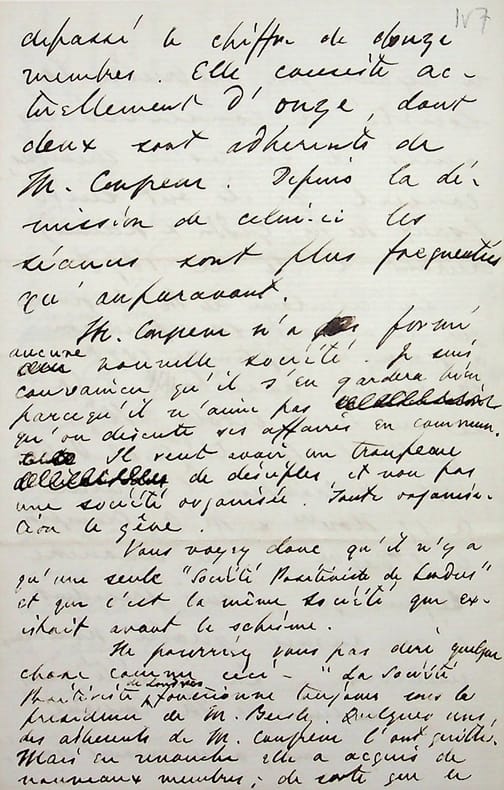 157
depassé le chiffre de douze
membres. Elle consiste ac-
tuellement d'onze, dont
deux sont adherents de
M. Congreve. Depuis la dé-
mission de celui-ci les
séances sont plus frequentées
qu'auparavant.
M. Congreve n'a pas formé
aucune nouvelle société. Je suis
convaincu qu'il s'en gardera bien
parcequ'il n'aime pas
qu'on discute ses affaires en commun.
Il veut avoir un troupeau
de disciples, et non pas
une société organisée. Toute organisa-
tion le gêne.
Vous voyez donc qu'il n'y a
qu'une seule "Société Positiviste de Londres"
et que c'est la même société que ex-
istait avant le schisme.
Ne pourriez vous pas dire quelque
chose comme ceci - "La Société
Positiviste de Londres fonctionne toujours sous la
présidence de M. Beesly. Quelques uns
des adherents de M. Congreve l'ont quittée.
Mais en revanche elle a acquis de
nouveaux membres; de sorte que le